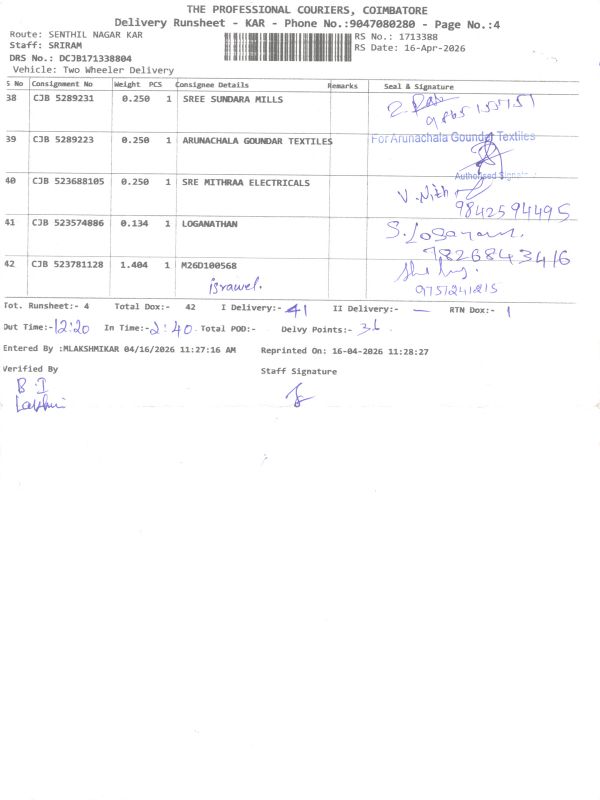 THE PROFESSIONAL COURIERS, COIMBATORE
Delivery Runsheet - KAR - Phone No.:9047080280 - Page No.:4
Route: SENTHIL NAGAR KAR RS No.: 1713388
Staff: SRIRAM RS Date: 16-Apr-2026
DRS No.: DCJB171338804
Vehicle: Two Wheeler Delivery
S No Consignment No Weight PCS Consignee Details Remarks Seal & Signature
38 CJB 5289231 0.250 1 SREE SUNDARA MILLS
39 CJB 5289223 0.250 1 ARUNACHALA GOUNDAR TEXTILES For Arunachala Goundar Textiles
Authorised
40 CJB 523688105 0.250 1 SRE MITHRAA ELECTRICALS
9842594495
41 CJB 523574886 0.134 1 LOGANATHAN
7826843416
42 CJB 523781128 1.404 1 M26D100568
israwel. 9751241215
Tot. Runsheet:- 4 Total Dox:- 42 I Delivery:- 41 II Delivery:- — RTN Dox:- 1
Out Time:- 12:20 In Time:- 2:40 Total POD:- Delvy Points:- 36
Entered By :MLAKSHMIKAR 04/16/2026 11:27:16 AM Reprinted On: 16-04-2026 11:28:27
Verified By Staff Signature
B.I